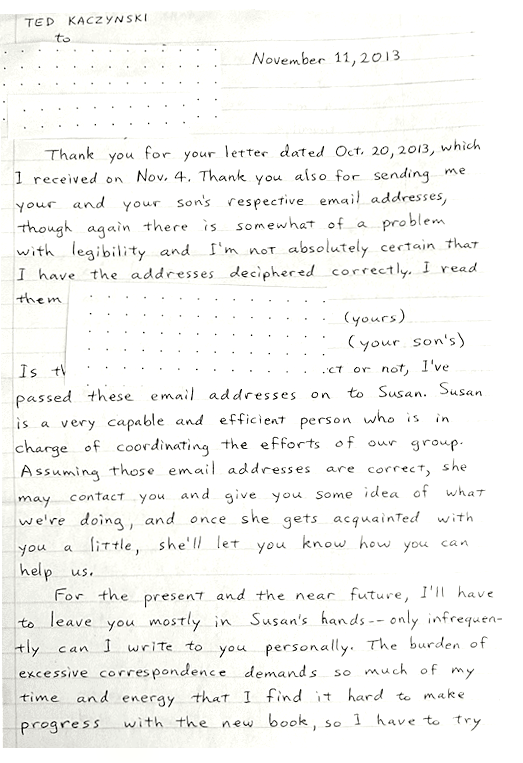 TED KACZYNSKI
to
November 11, 2013
Thank you for your letter dated Oct. 20, 2013, which
I received on Nov. 4. Thank you also for sending me
your and your son's respective email addresses,
though again there is somewhat of a problem
with legibility and I'm not absolutely certain that
I have the addresses deciphered correctly. I read
them
(yours)
(your son's)
Is ct or not, I've
passed these email addresses on to Susan. Susan
is a very capable and efficient person who is in
charge of coordinating the efforts of our group.
Assuming those email addresses are correct, she
may contact you and give you some idea of what
we're doing, and once she gets acquainted with
you a little, she'll let you know how you can
help us.
For the present and the near future, I'll have
to leave you mostly in Susan's hands -- only infrequen-
tly can I write to you personally. The burden of
excessive correspondence demands so much of my
time and energy that I find it hard to make
progress with the new book, so I have to try